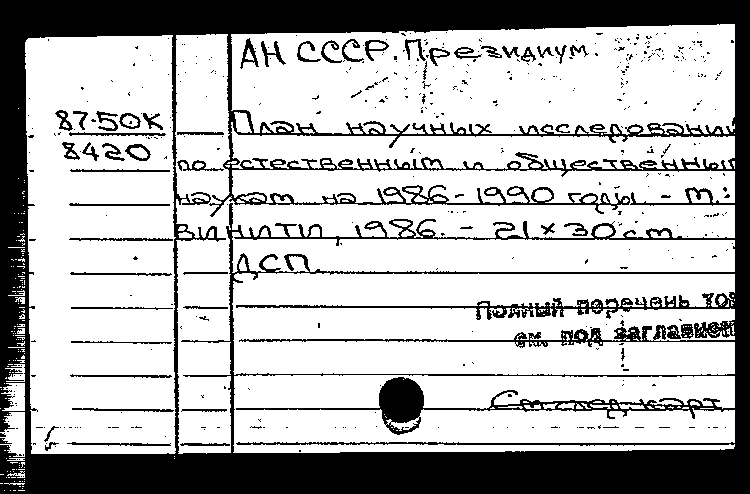 АН СССР. Президиум.
87-50К
8420
План научных исследований
по естественным и общественным
наукам на 1986-1990 годы. - М.:
ВИНИТИ, 1986. - 21×30 см.
ДСП.
Полный перечень том
см. под заглавием
См. след. карт